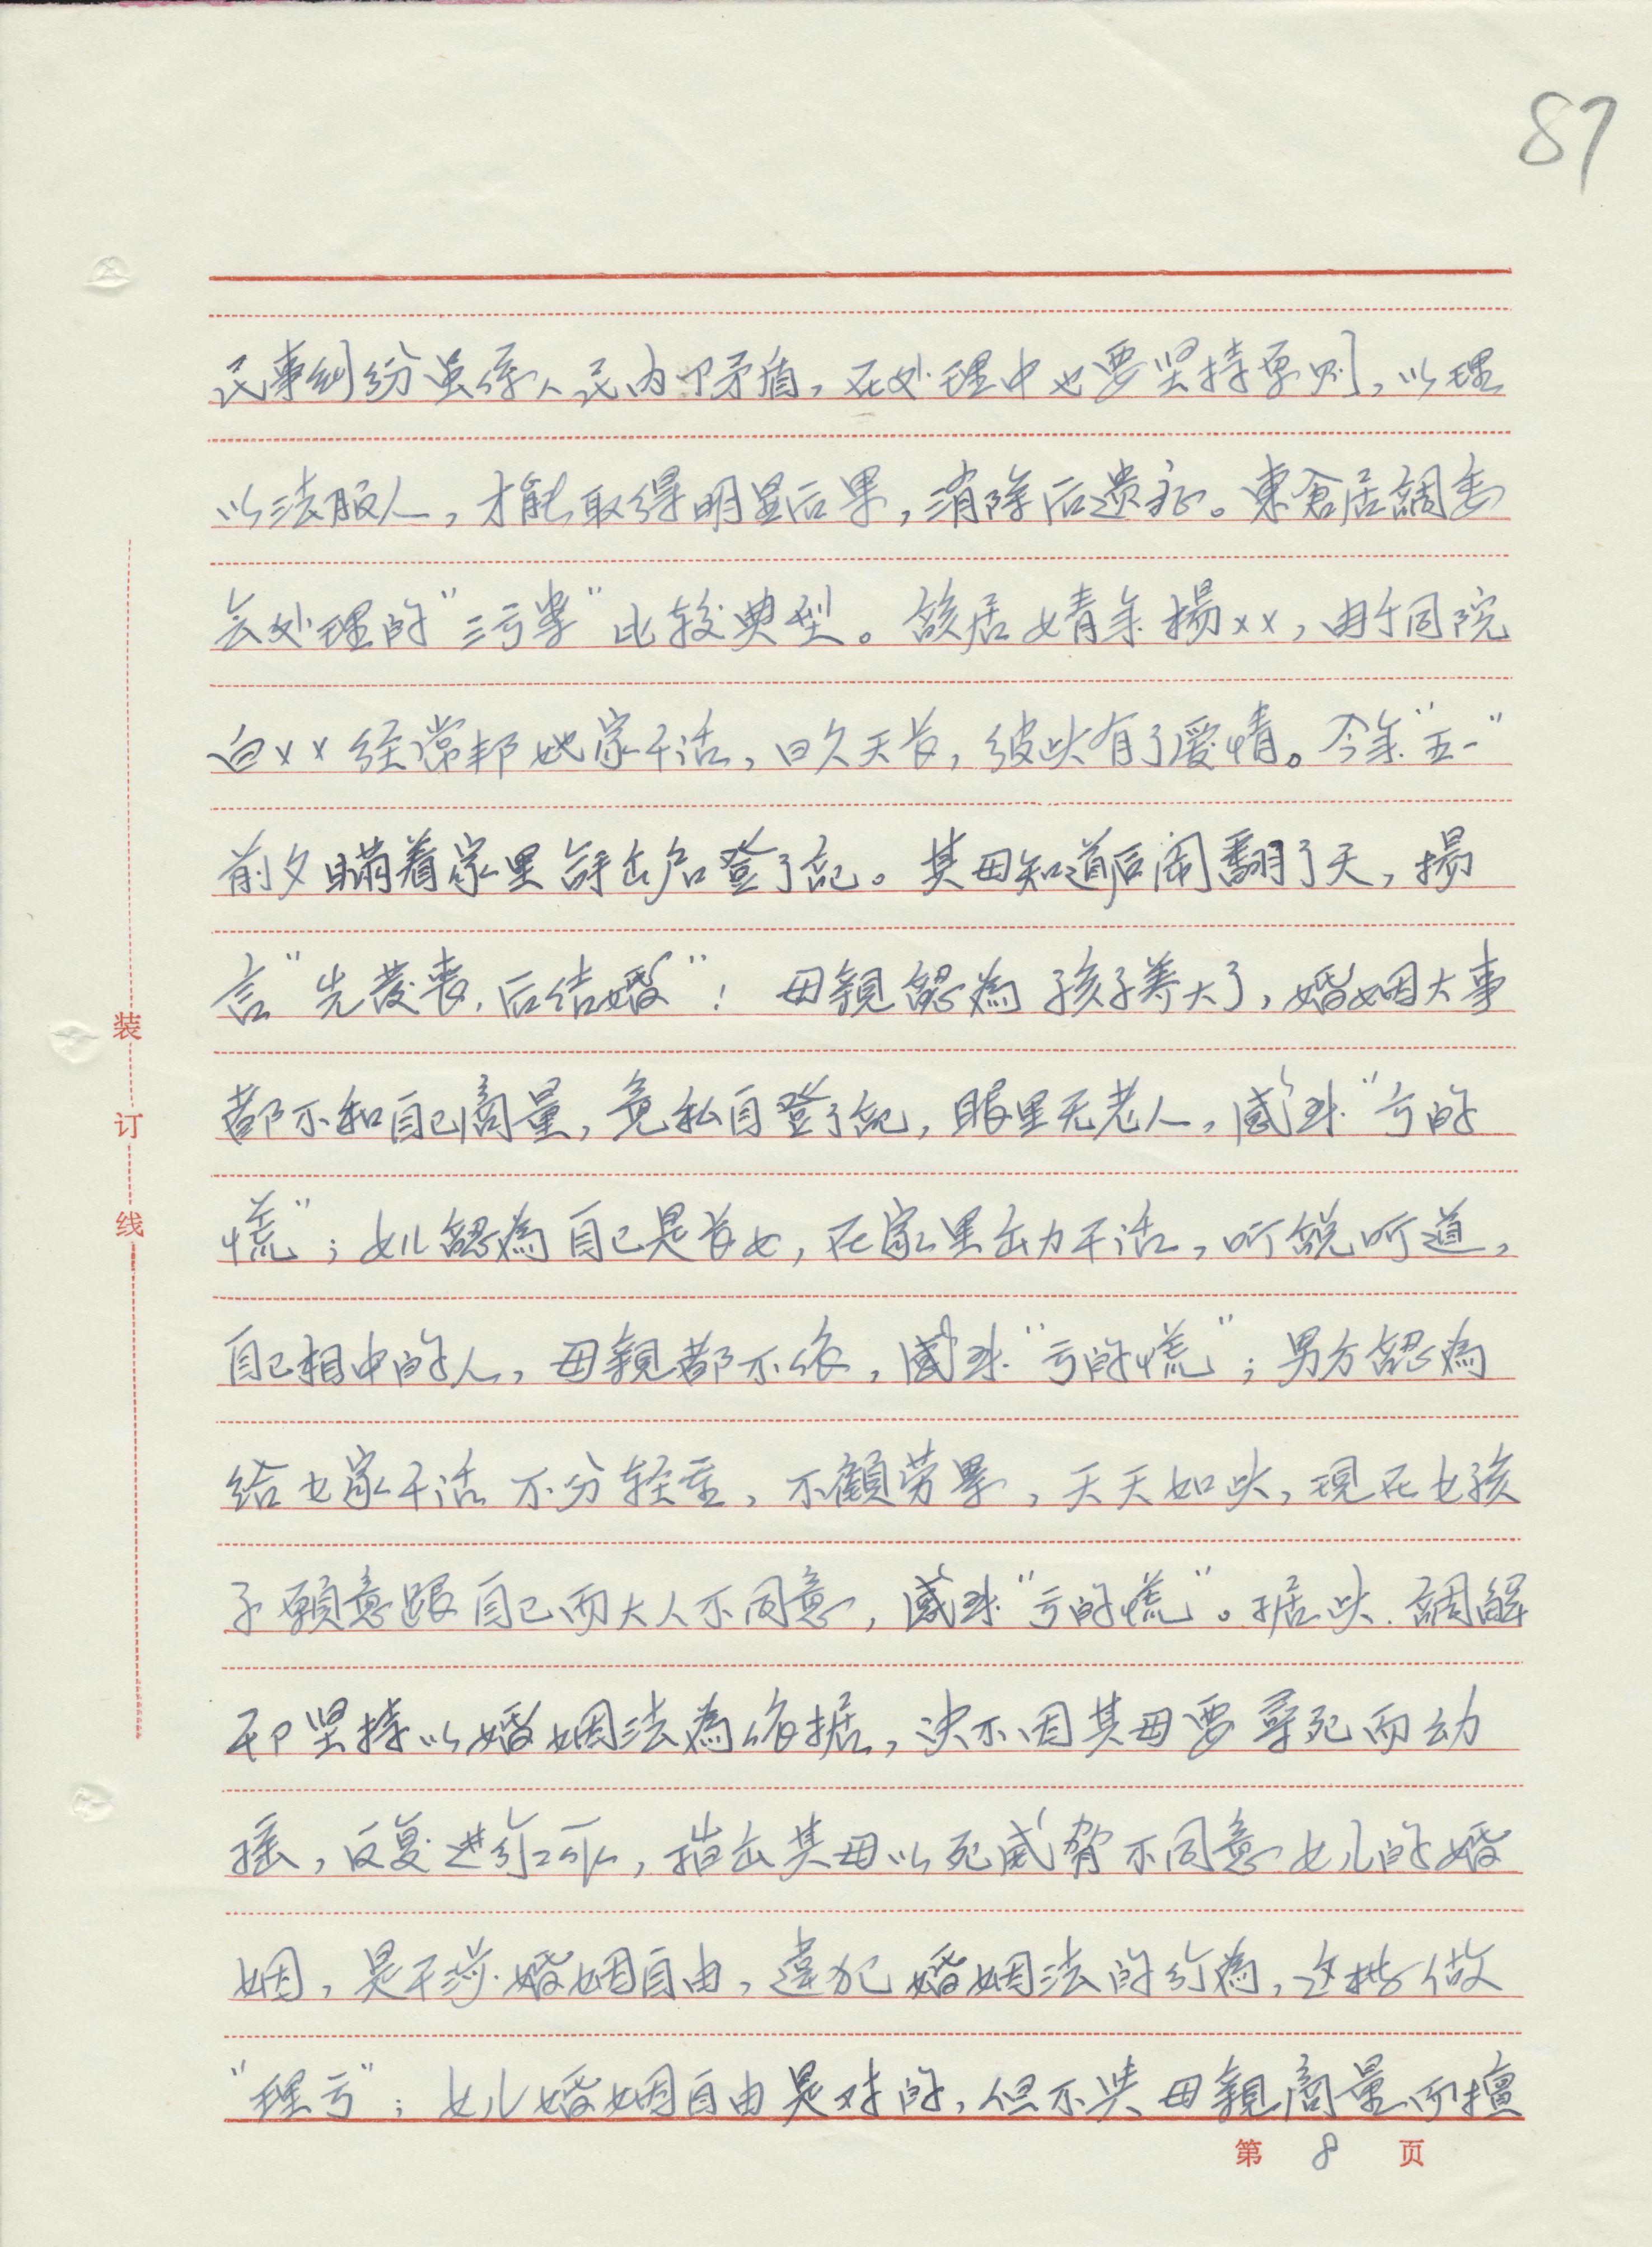 87
民事纠纷虽係人民内卩矛盾，在处理中也要坚持原则，以理
以法服人，才能取得明显后果，消除后遗症。東倉居調委
会处理的“三亏案”比较典型。該居女青年楊××，由于同院
白××经常邦她家干活，日久天长，彼此有了爱情。今年“五一”
前夕瞒着家里辞出名登了記。其母知道后闹翻了天，揚
言“先發喪，后结婚”！母親認為孩子养大了，婚姻大事
都不和自己商量，竟私自登了記，眼里无老人，感到“亏的
慌”；女儿認為自己是长女，在家里出力干活，听説听道，
自己相中的人，母親都不依，感到“亏的慌”；男方認為
给女家干活不分轻重，不顧劳累，天天如此，現在女孩
子願意跟自己而大人不同意，感到“亏的慌”。据此，調解
干卩坚持以婚姻法為依据，决不因其母要尋死而动
摇，反复进行工作，指出其母以死威脅不同意女儿的婚
姻，是干涉婚姻自由，違犯婚姻法的行為，这样做
“理亏”；女儿婚姻自由是对的，但不先母親商量而擅
装
订
线
第 8 页